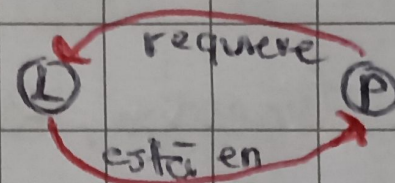 requiere
L P
está en